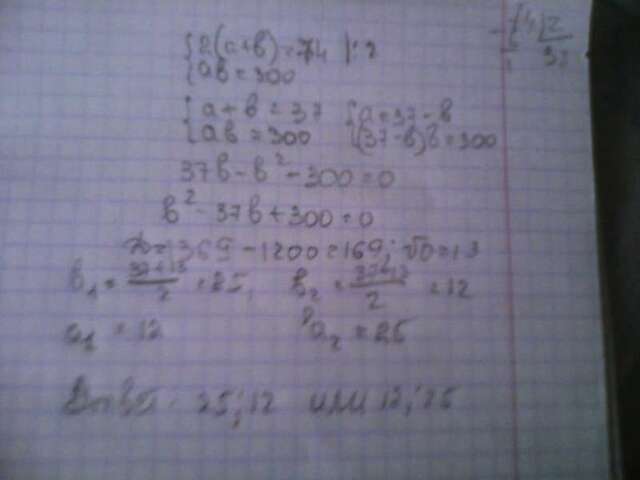 {2(a+b)=74 |:2
{ab=300
{a+b=37 {a=37-b
{ab=300 {(37-b)b=300
37b-b²-300=0
b²-37b+300=0
D=1369-1200=169; √D=13
b₁=(37+13)/2=25, b₂=(37-13)/2=12
a₁=12 a₂=25
Ответ: 25; 12 или 12; 25